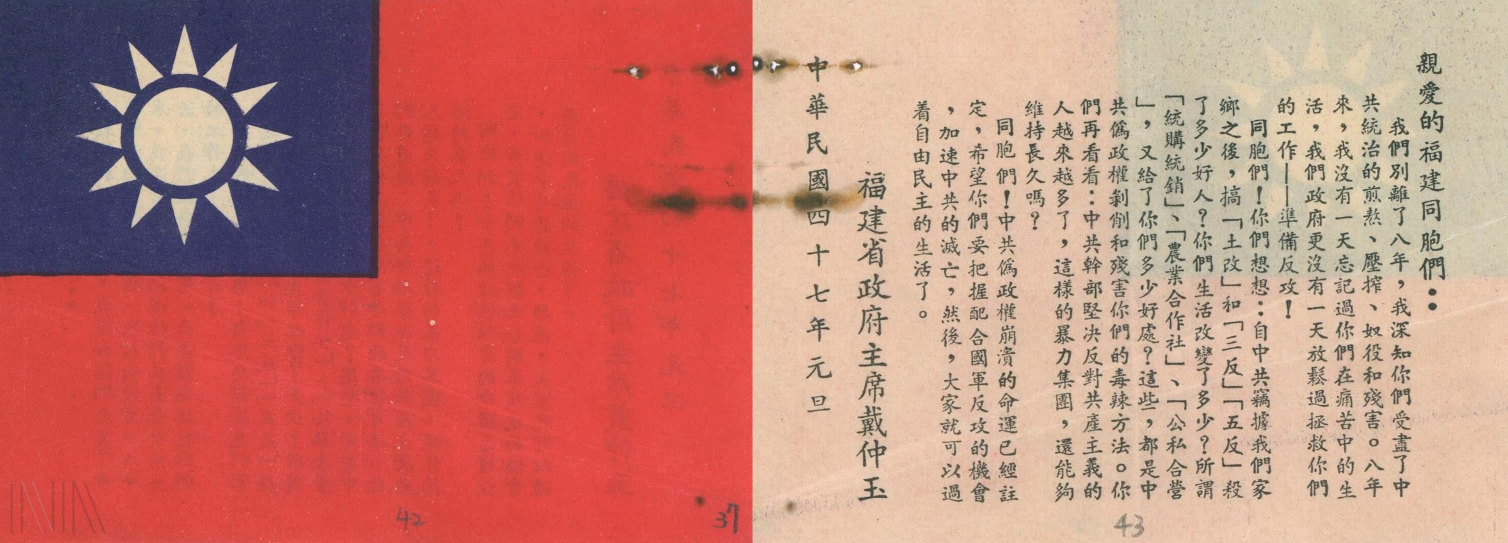 親愛的福建同胞們：
我們別離了八年，我深知你們受盡了中
共統治的煎熬、壓搾、奴役和殘害。八年
來，我沒有一天忘記過你們在痛苦中的生
活，我們政府更沒有一天放鬆過拯救你們
的工作——準備反攻！
同胞們！你們想想：自中共竊據我們家
鄉之後，搞「土改」和「三反」「五反」殺
了多少好人？你們生活改變了多少？所謂
「統購統銷」、「農業合作社」、「公私合營
」，又給了你們多少好處？這些，都是中
共僞政權剝削和殘害你們的毒辣方法。你
們再看看：中共幹部堅决反對共產主義的
人越來越多了，這樣的暴力集團，還能夠
維持長久嗎？
同胞們！中共僞政權崩潰的命運已經註
定，希望你們要把握配合國軍反攻的機會
，加速中共的滅亡，然後，大家就可以過
着自由民主的生活了。
福建省政府主席戴仲玉
中華民國四十七年元旦
43
37
42